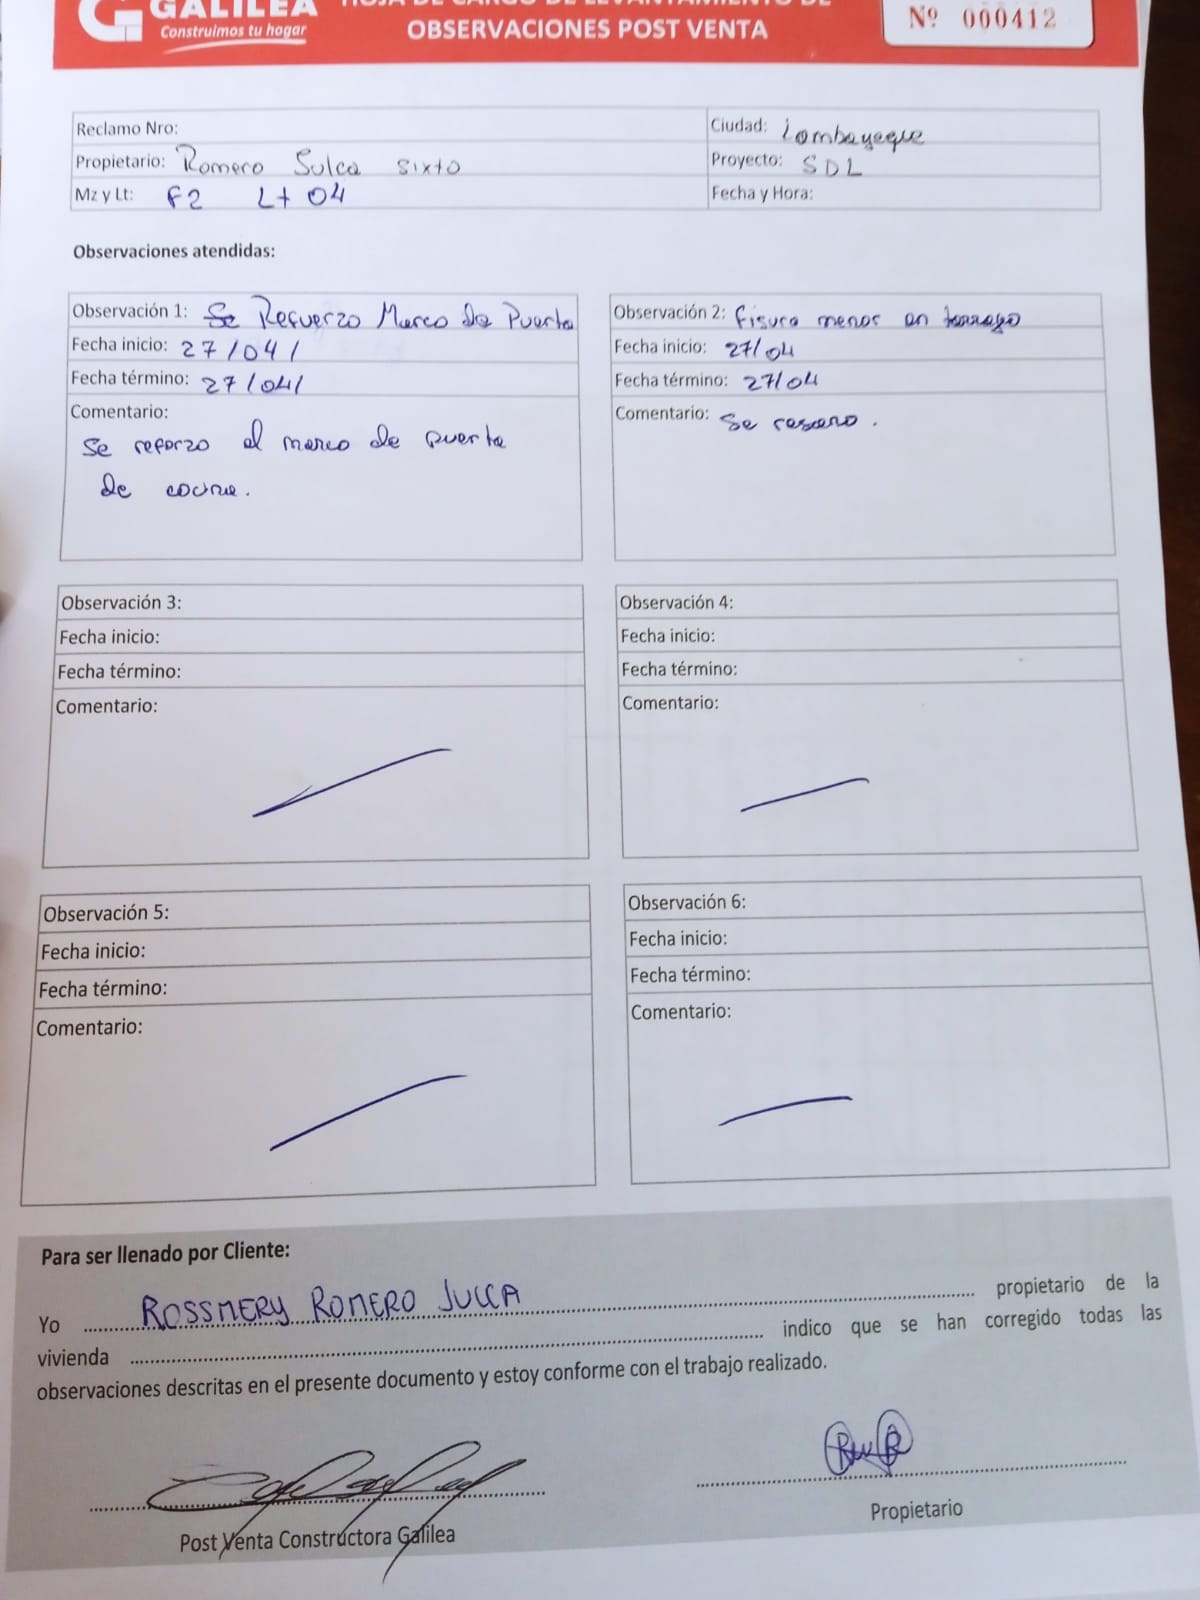 GALILEA
Construimos tu hogar
HOJA DE CARGO DE LEVANTAMIENTO DE
OBSERVACIONES POST VENTA
Nº 000412
Reclamo Nro:
Ciudad: Lambayeque
Propietario: Romero Sulca Sixto
Proyecto: SDL
Mz y Lt: F2 Lt 04
Fecha y Hora:
Observaciones atendidas:
Observación 1: Se Refuerzo Marco De Puerta
Fecha inicio: 27/04/
Fecha término: 27/04/
Comentario:
Se reforzo el marco de puerta
de cocina.
Observación 2: Fisura menor en
Fecha inicio: 27/04
Fecha término: 27/04
Comentario: Se resano.
Observación 3:
Fecha inicio:
Fecha término:
Comentario:
Observación 4:
Fecha inicio:
Fecha término:
Comentario:
Observación 5:
Fecha inicio:
Fecha término:
Comentario:
Observación 6:
Fecha inicio:
Fecha término:
Comentario:
Para ser llenado por Cliente:
Yo ROSSMERY ROMERO JULCA propietario de la
vivienda indico que se han corregido todas las
observaciones descritas en el presente documento y estoy conforme con el trabajo realizado.
Post Venta Constructora Galilea
Propietario